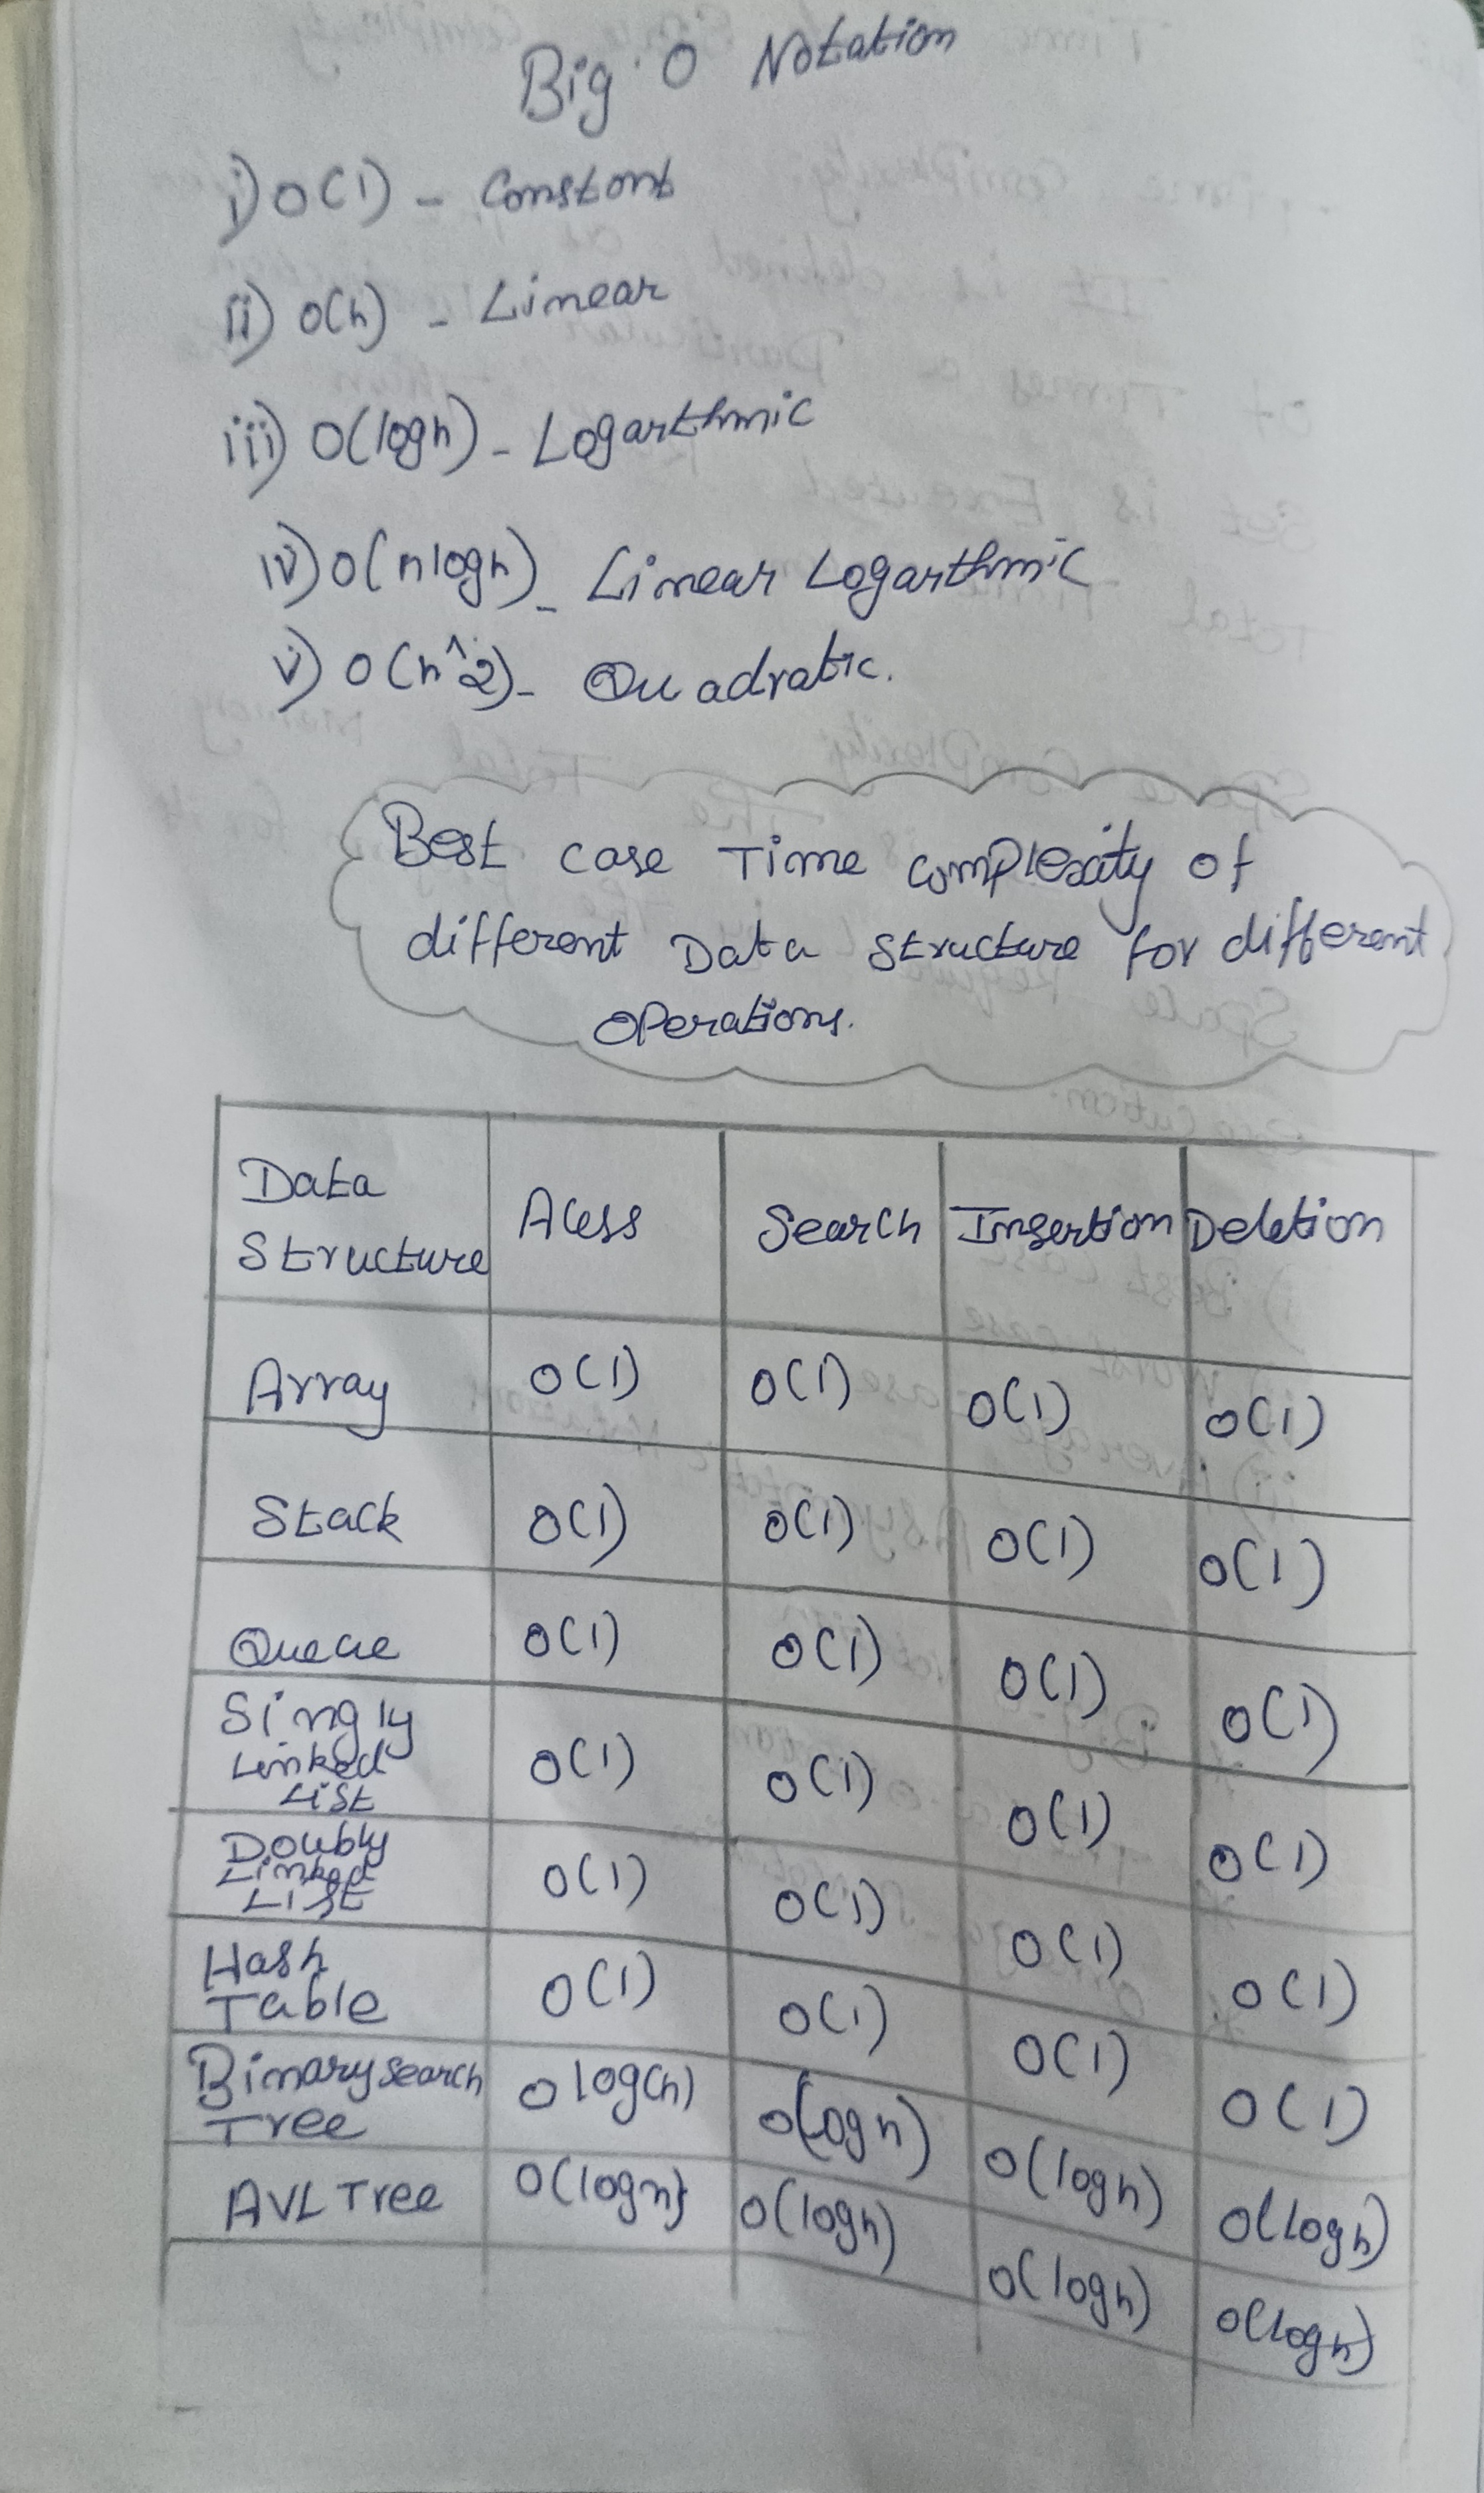 Big O Notation
i) O(1) - Constant
ii) O(n) - Linear
iii) O(logn) - Logarthmic
iv) O(nlogn) - Linear Logarthmic
v) O(n^2) - Quadratic.
Best case Time complexity of
different Data structure for different
operations.
Data Structure Acess Search Insertion Deletion
Array O(1) O(1) O(1) O(1)
Stack O(1) O(1) O(1) O(1)
Queue O(1) O(1) O(1) O(1)
Singly Linked List O(1) O(1) O(1) O(1)
Doubly Linked List O(1) O(1) O(1) O(1)
Hash Table O(1) O(1) O(1) O(1)
Binary search Tree O log(n) O(logn) O(logn) O(logn)
AVL Tree O(logn) O(logn) O(logn) O(logn)